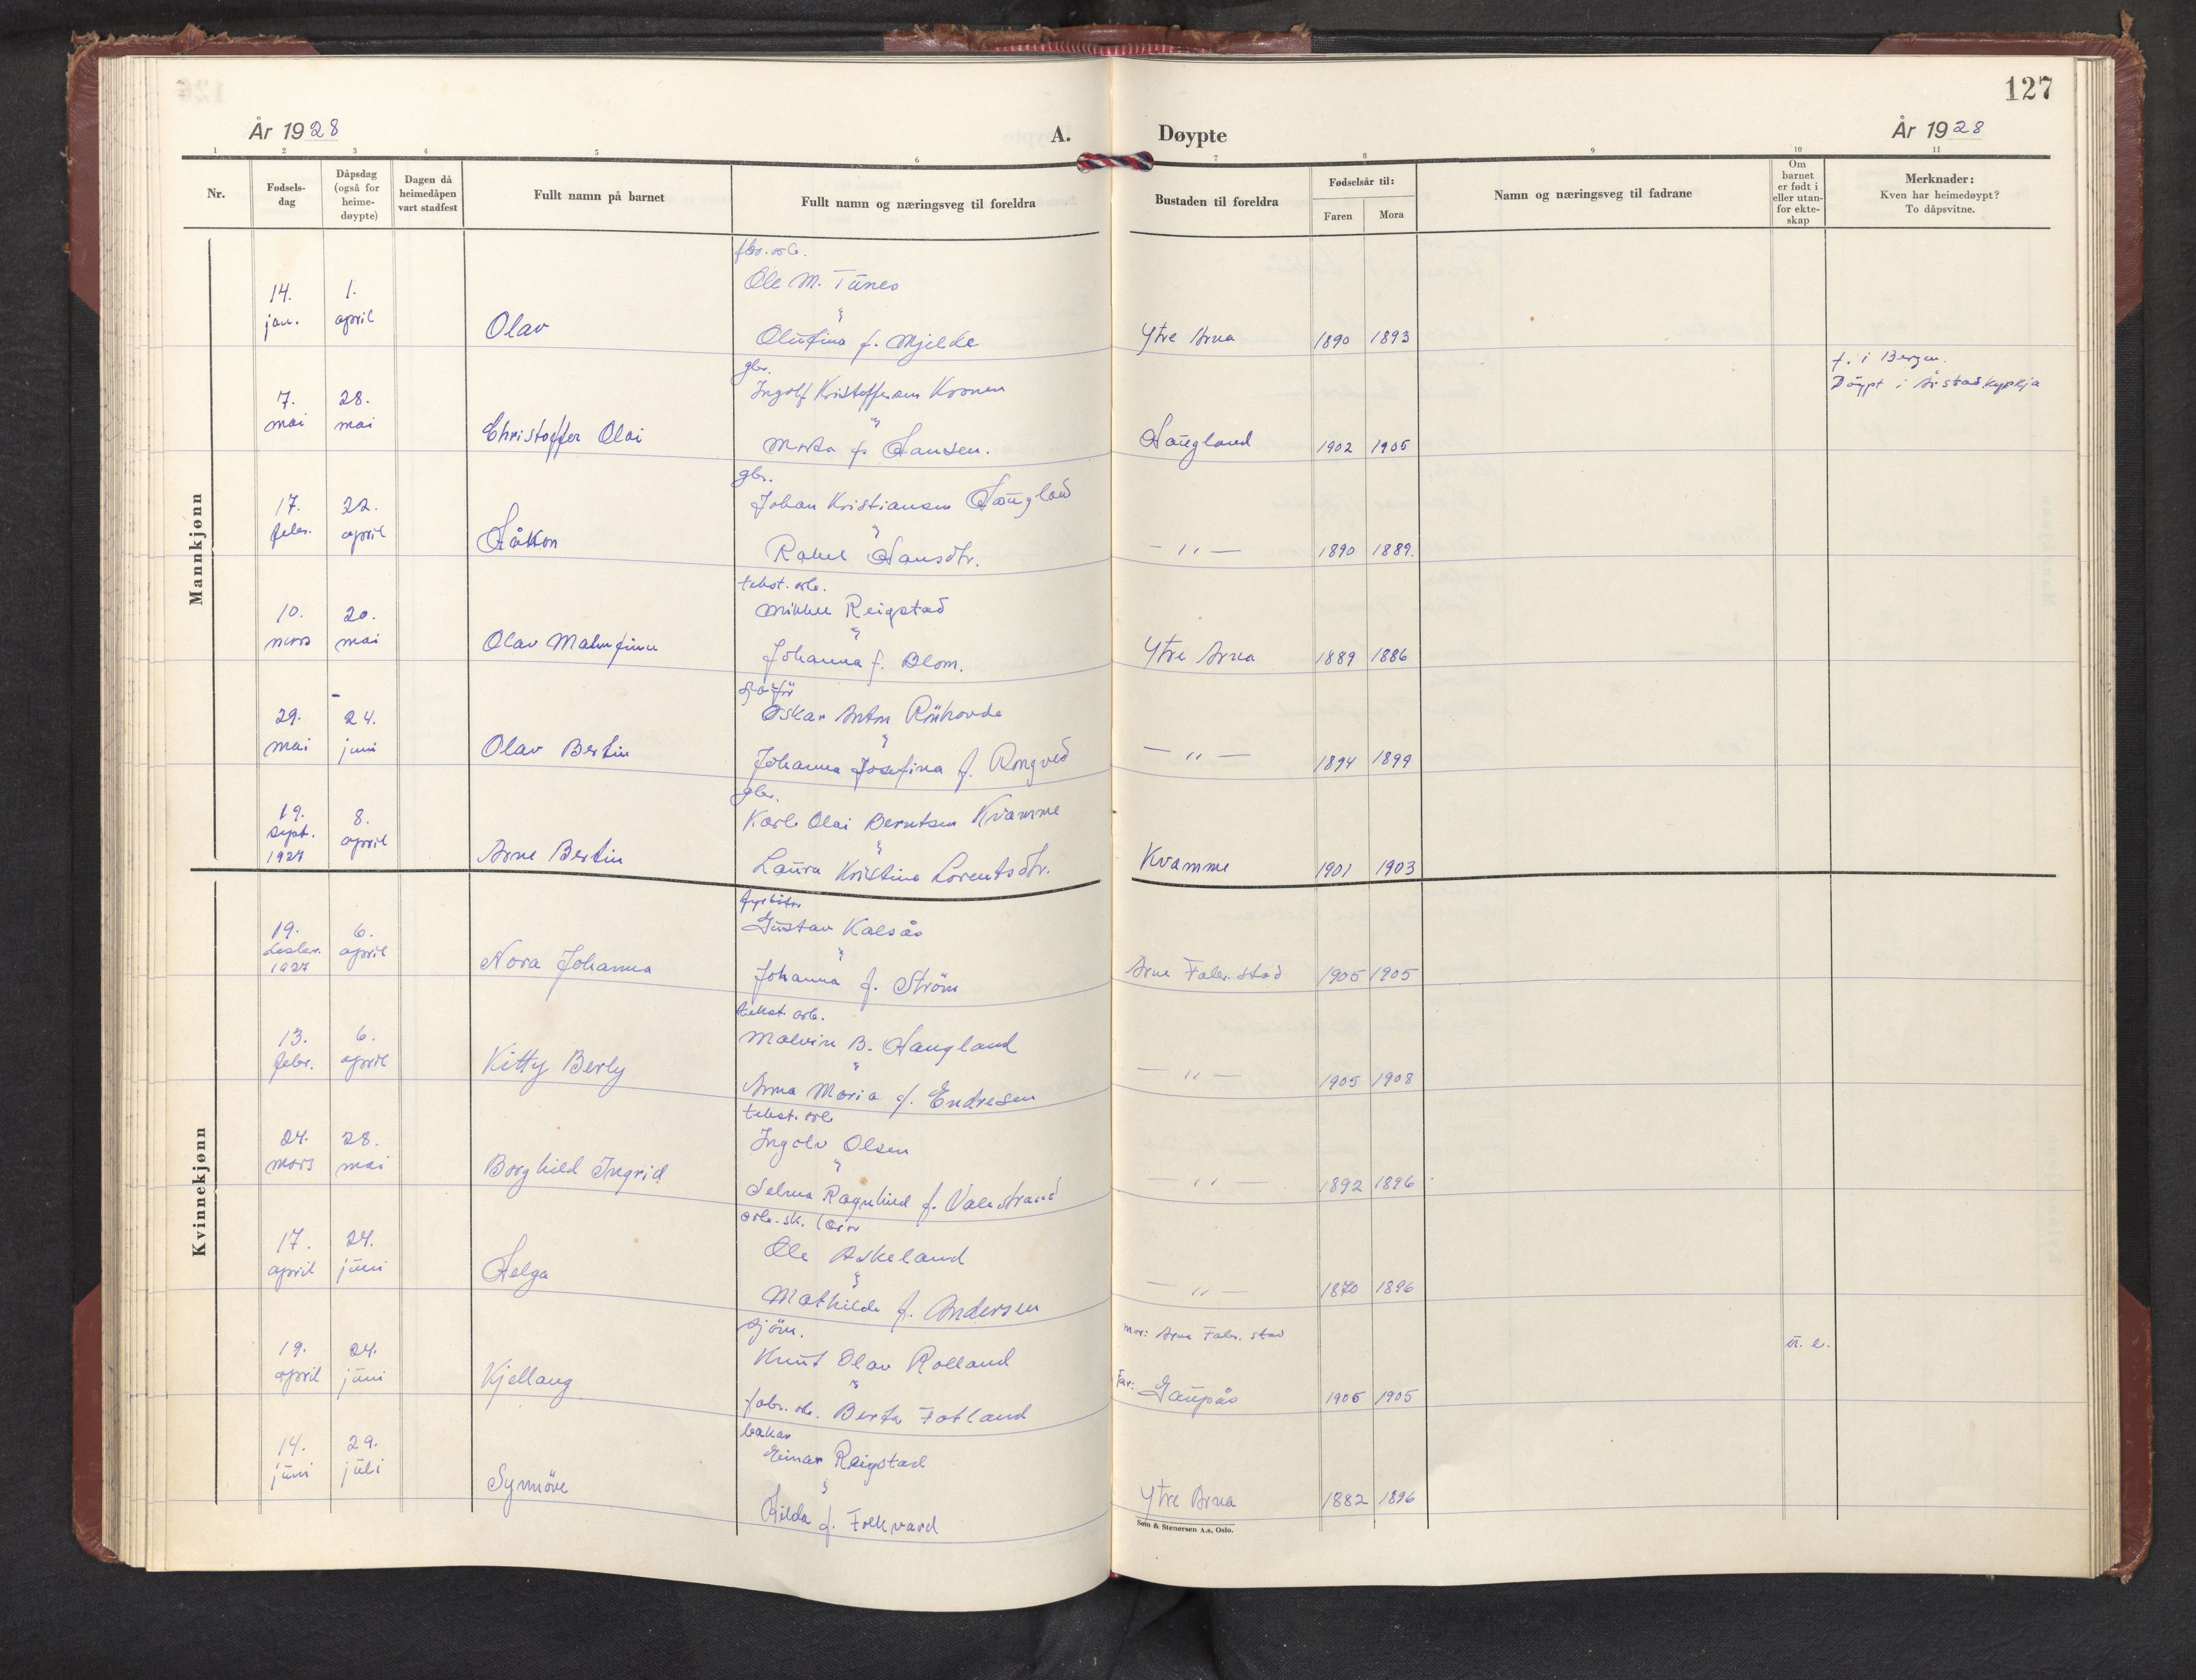 127
År 1928
A.
Døypte
År 1928
1 2 3 4 5 6 7 8 9 10 11
Nr.
Fødsels-
dag
Dåpsdag
(også for
heime-
døypte)
Dagen då
heimedåpen
vart stadfest
Fullt namn på barnet
Fullt namn og næringsveg til foreldra
Bustaden til foreldra
Fødselsår til:
Faren
Mora
Namn og næringsveg til fadrane
Om
barnet
er født i
eller utan-
for ekte-
skap
Merknader:
Kven har heimedøypt?
To dåpsvitne.
Mannkjønn
Ole M. Tunes
14. jan. 1. april Olav
Olufina f. Mjelde Ytre Arna 1890 1893
f. i Bergen.
Døypt i Årstadkyrkja
gbr.
Ingolf Kristoffersen Kronen
7. mai 28. mai Christoffer Olai
Marta f. Hansen. Haugland 1902 1905
gbr.
Johan Kristiansen Haugland
17. febr. 22. april Håkon
Rakel Hansdtr. — ,, — 1890 1889.
tekst. arb.
Mikkel Reigstad
10. mars 20. mai Olav
Johanna f. Blom. Ytre Arna 1889 1886
Oskar Anton
29. mai 24. juni Olav Bertin
Johanna Josefina f. Rongved — ,, — 1894 1899
gbr.
Karl Olai Berntsen Kvamme
19. sept. 1927 8. april Arne Bertin
Laura Kristine Lorentsdtr. Kvamme 1901 1903
Kvinnekjønn
fyrbøtar
Gustav Kalsås
19. desbr. 1927 6. april Nora Johanna
Johanna f. Strøm Arne Fabr. stad 1905 1905
tekst. arb.
Malvin B. Haugland
13. febr. 6. april Kitty Berly
Anna Maria f. Endresen — ,, — 1905 1908
tekst. arb.
Ingolv Olsen
24. mars 28. mai Borghild Ingrid
Selma Ragnhild f. Valestrand — ,, — 1892 1896
Ole Askeland
17. april 24. juni Helga
Mathilde f. Andersen — ,, — 1870 1896
sjöm.
mor: Arne Fabr. stad
Knut Olav Rolland u. e.
19. april 24. juni Kjellaug
fabr. arb. Berta Fotland Far: Gaupås 1905 1905
bakar
Einar Reigstad
14. juni 29. juli Synnöve
Hilda f. Folkvard Ytre Arna 1882 1896
Sem & Stenersen A.s, Oslo.